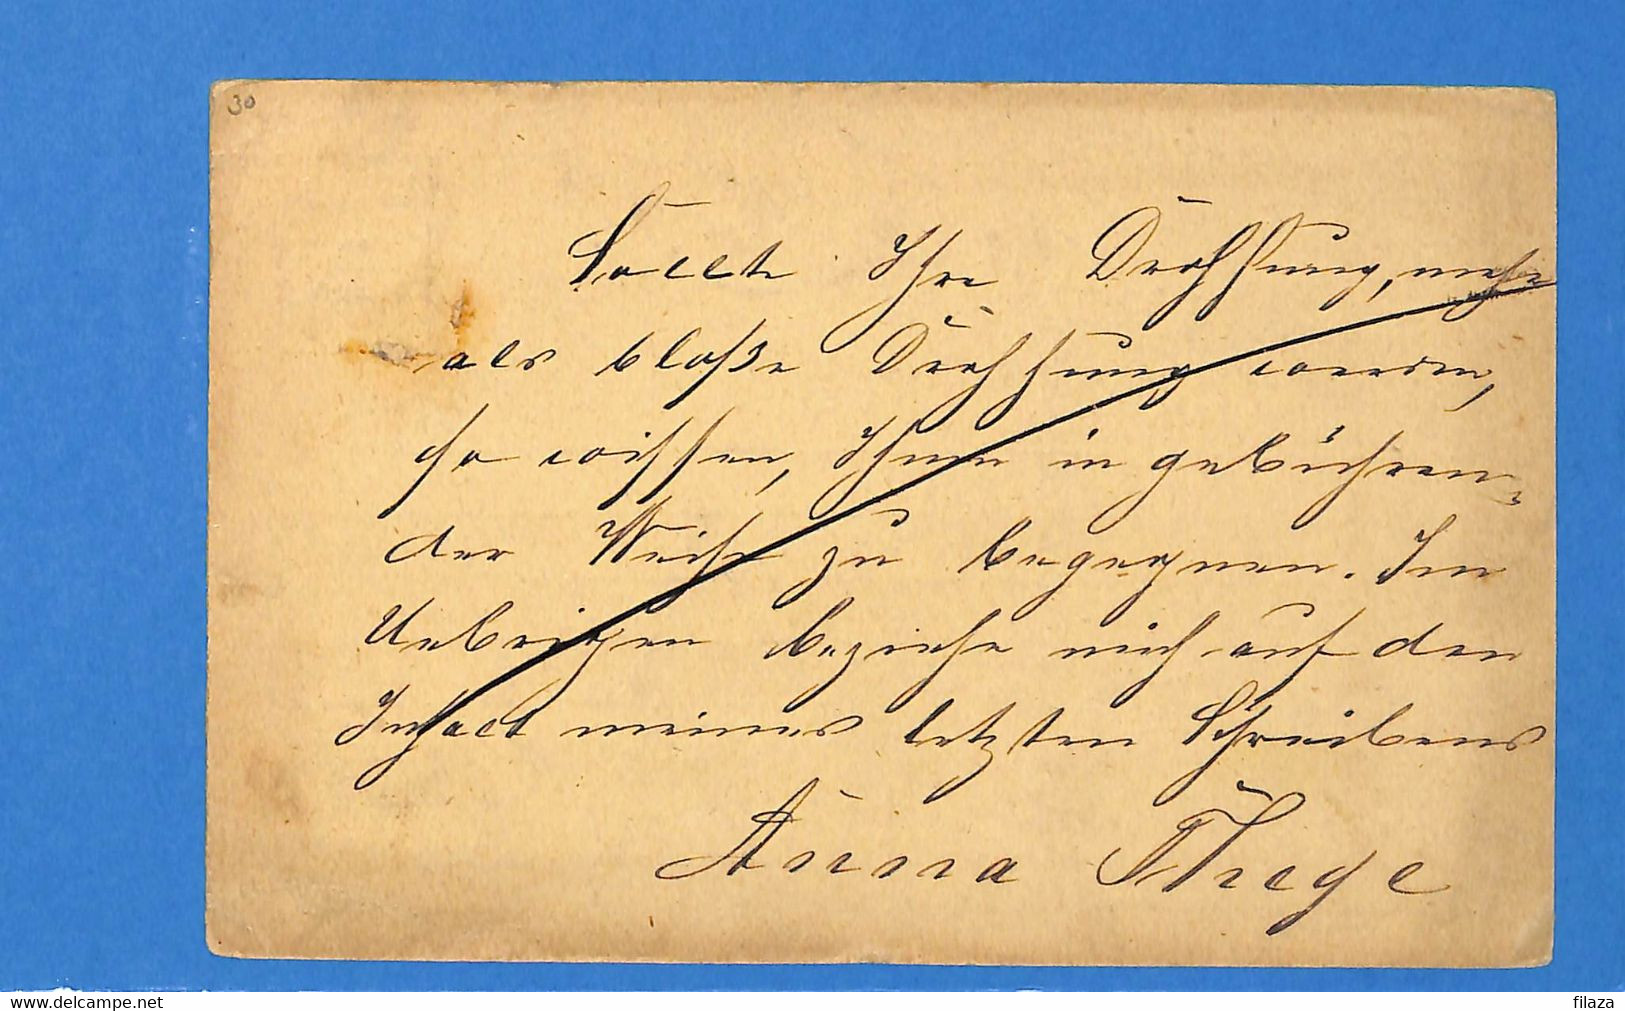 30
Sollte Ihre Drohung, mehr
als bloße Drohung werden,
so wissen, Ihnen in gebühren-
der Weise zu begegnen. Im
Uebrigen beziehe mich auf den
Inhalt meines letzten Schreibens
Anna Thege
www.delcampe.net
filaza